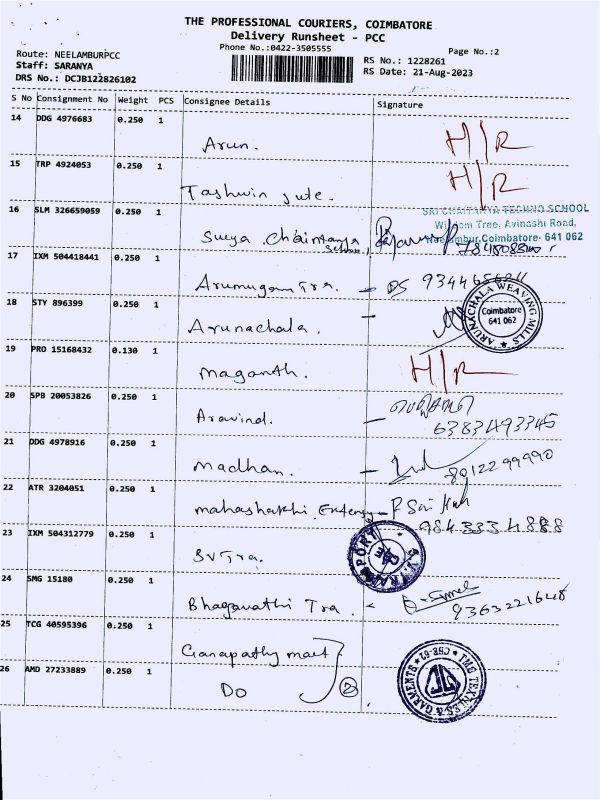 THE PROFESSIONAL COURIERS, COIMBATORE
Delivery Runsheet - PCC
Phone No.:0422-3505555
Page No.:2
Route: NEELAMBURPCC
Staff: SARANYA
DRS No.: DCJB122826102
RS No.: 1228261
RS Date: 21-Aug-2023
S No Consignment No Weight PCS Consignee Details Signature
14 DDG 4976683 0.250 1 Arun. H/R
15 TRP 4924053 0.250 1 Tashwin jute. H/R
16 SLM 326659059 0.250 1 Surya Chaintanya School,
SRI CHAITANYA TECHNO SCHOOL
Wisdom Tree, Avinashi Road,
Neelambur, Coimbatore- 641 062
17 IXM 504418441 0.250 1 Arumugam Tra.
18 STY 896399 0.250 1 Arunachala.
ARUNACHALA WEAVING MILLS
Coimbatore
641 062
19 PRO 15168432 0.130 1 Maganth. H/R
20 SPB 20053826 0.250 1 Aravind. - 6383493345
21 DDG 4978916 0.250 1 Madhan. - 8012299990
22 ATR 3204051 0.250 1 mahashakthi - 9843334888
23 IXM 504312779 0.250 1 SVTra.
24 SMG 15180 0.250 1 Bhagavathi Tra.
25 TCG 40595396 0.250 1 Ganapathy mart
26 AMD 27233889 0.250 1 Do 2
TMG TEXTILES & GARMENTS
CSB-62